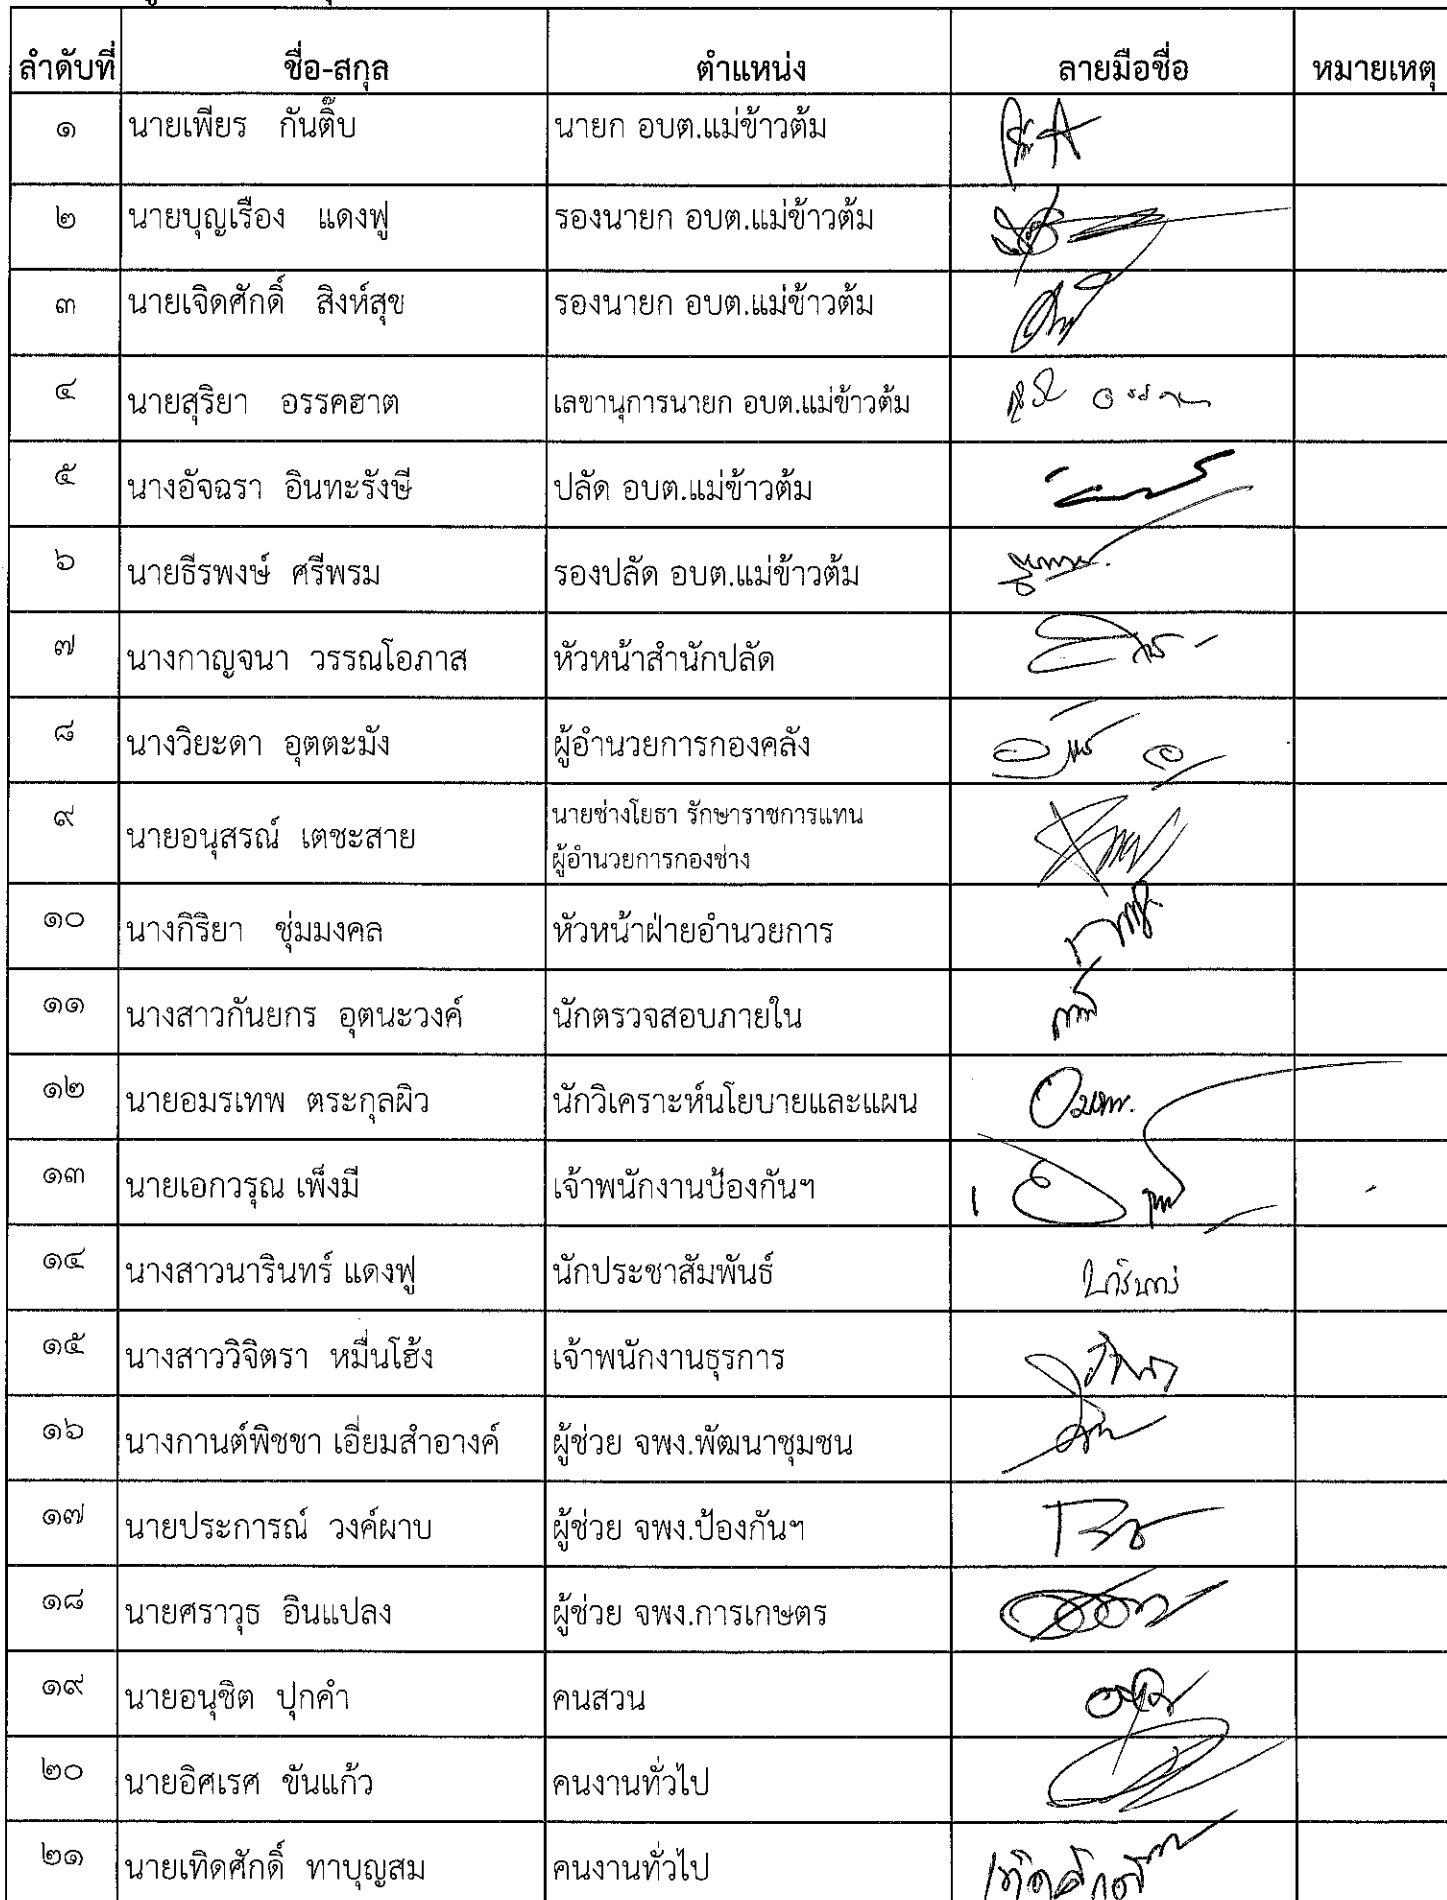 ลำดับที่ ชื่อ-สกุล ตำแหน่ง ลายมือชื่อ หมายเหตุ
๑ นายเพียร กันติ๊บ นายก อบต.แม่ข้าวต้ม
๒ นายบุญเรือง แดงฟู รองนายก อบต.แม่ข้าวต้ม
๓ นายเจิดศักดิ์ สิงห์สุข รองนายก อบต.แม่ข้าวต้ม
๔ นายสุริยา อรรคฮาต เลขานุการนายก อบต.แม่ข้าวต้ม
๕ นางอัจฉรา อินทะรังษี ปลัด อบต.แม่ข้าวต้ม
๖ นายธีรพงษ์ ศรีพรม รองปลัด อบต.แม่ข้าวต้ม
๗ นางกาญจนา วรรณโอภาส หัวหน้าสำนักปลัด
๘ นางวิยะดา อุตตะมัง ผู้อำนวยการกองคลัง
๙ นายอนุสรณ์ เตชะสาย นายช่างโยธา รักษาราชการแทน
ผู้อำนวยการกองช่าง
๑๐ นางกิริยา ชุ่มมงคล หัวหน้าฝ่ายอำนวยการ
๑๑ นางสาวกันยกร อุตนะวงค์ นักตรวจสอบภายใน
๑๒ นายอมรเทพ ตระกุลผิว นักวิเคราะห์นโยบายและแผน
๑๓ นายเอกวรุณ เพ็งมี เจ้าพนักงานป้องกันฯ
๑๔ นางสาวนารินทร์ แดงฟู นักประชาสัมพันธ์
๑๕ นางสาววิจิตรา หมื่นโฮ้ง เจ้าพนักงานธุรการ
๑๖ นางกานต์พิชชา เอี่ยมสำอางค์ ผู้ช่วย จพง.พัฒนาชุมชน
๑๗ นายประการณ์ วงค์ผาบ ผู้ช่วย จพง.ป้องกันฯ
๑๘ นายศราวุธ อินแปลง ผู้ช่วย จพง.การเกษตร
๑๙ นายอนุชิต ปุกคำ คนสวน
๒๐ นายอิศเรศ ขันแก้ว คนงานทั่วไป
๒๑ นายเทิดศักดิ์ ทาบุญสม คนงานทั่วไป เทิดศักดิ์